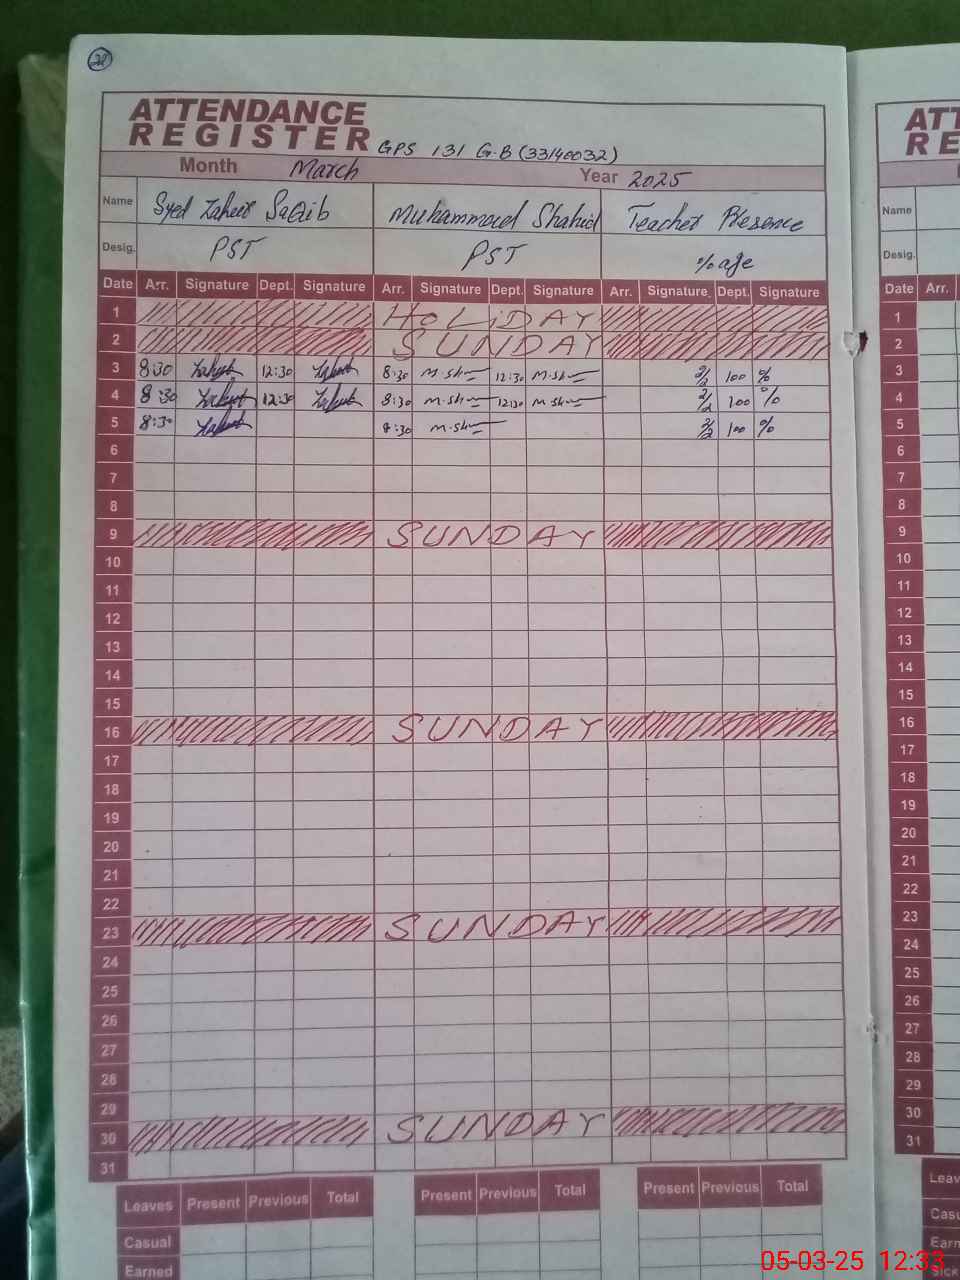 21
ATTENDANCE
REGISTER GPS 131 G.B (33140032)
Month March Year 2025
Name Syed Zaheer Saqib Muhammad Shahid Teacher Presence
Desig. PST PST %age
Date Arr. Signature Dept. Signature Arr. Signature Dept. Signature Arr. Signature Dept. Signature
1 HOLIDAY
2 SUNDAY
3 8:30 12:30 8:30 12:30 2/2 100 %
4 8:30 12:30 8:30 12:30 2/2 100 %
5 8:30 8:30 2/2 100 %
6
7
8
9 SUNDAY
10
11
12
13
14
15
16 SUNDAY
17
18
19
20
21
22
23 SUNDAY
24
25
26
27
28
29
30 SUNDAY
31
Leaves Present Previous Total Present Previous Total Present Previous Total
Casual
Earned
ATT
RE
Name
Desig.
Date Arr.
1
2
3
4
5
6
7
8
9
10
11
12
13
14
15
16
17
18
19
20
21
22
23
24
25
26
27
28
29
30
31
Leav
Casu
Earn
Sick
05-03-25 12:33